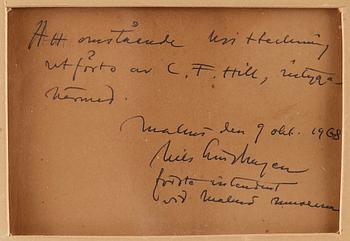 Att omstående kritteckning
utförts av C. F. Hill, intyga
härmed.
Malmö den 9 okt. 1968
Nils Lindhagen
förste intendent
vid Malmö museum